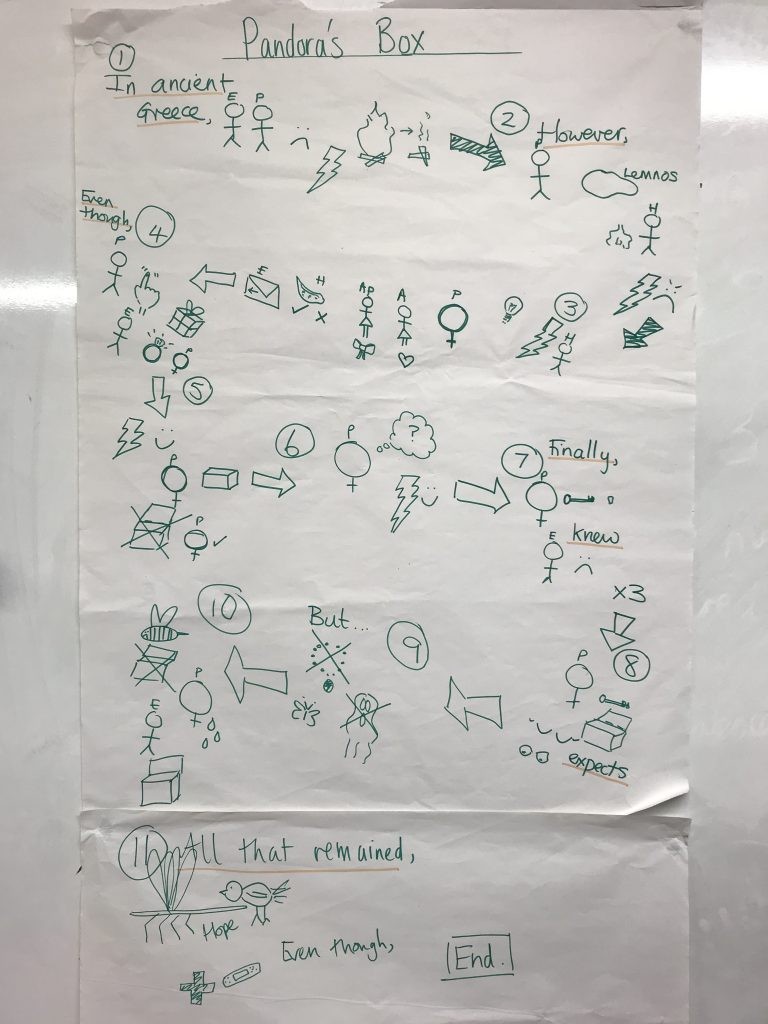 Pandora's Box
1
In ancient
Greece,
E P
2
However,
P
Lemnos
H
3
H
P
A
Ap
H
E
Even
though,
4
P
E
P
5
P
P
6
P
?
7
Finally,
P
E
knew
x3
8
P
expects
9
But...
10
P
E
11
All that remained,
Hope
Even though,
End.